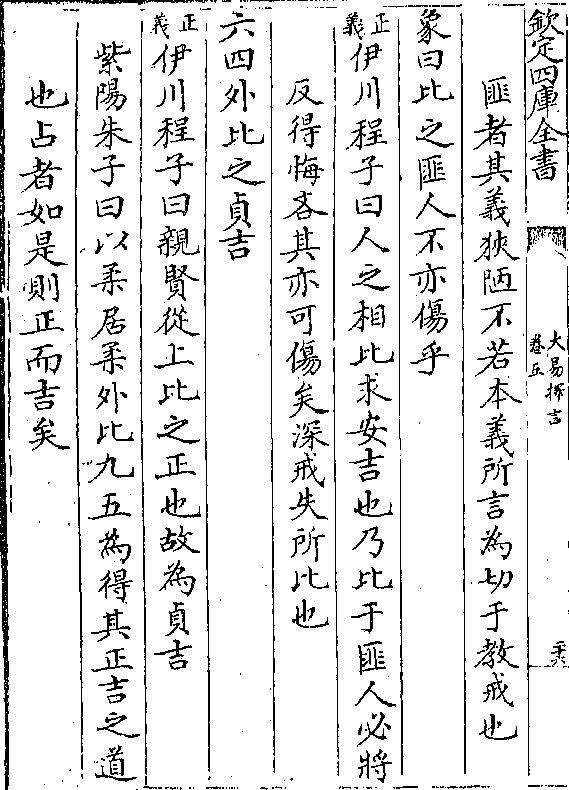 欽定四庫全書
大易擇言
卷五
匪者其義狹陋不若本義所言為切于教戒也
象曰比之匪人不亦傷乎
正義伊川程子曰人之相比求安吉也乃比于匪人必將
反得悔吝其亦可傷矣深戒失所比也
六四外比之貞吉
正義伊川程子曰親賢從上比之正也故為貞吉
紫陽朱子曰以柔居柔外比九五為得其正吉之道
也占者如是則正而吉矣